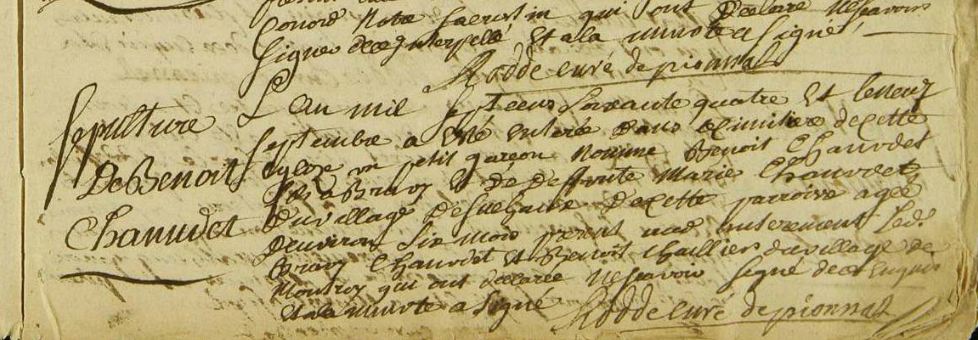 honoré notre sacristin qui ont declaré ne scavoir
signer de ce interpellé et a la minute a signé
Rodde curé de pionnat
Sepulture
De Benoit
Chaurdet
L'an mil sept cens soixante quatre et le neuf
septembre a eté enterré dans le cimitiere de cette
eglise un petit garçon nommé Benoit Chaurdet
et de deffunte Marie Chaurdet
du village de cette parroisse agé
d'environ six mois present aud enterrement led.
Chaurdet et Benoit Chaillier du village de
Montroy qui ont declaré ne scavoir signé de ce enquis
et a la minute a signé Rodde curé de pionnat